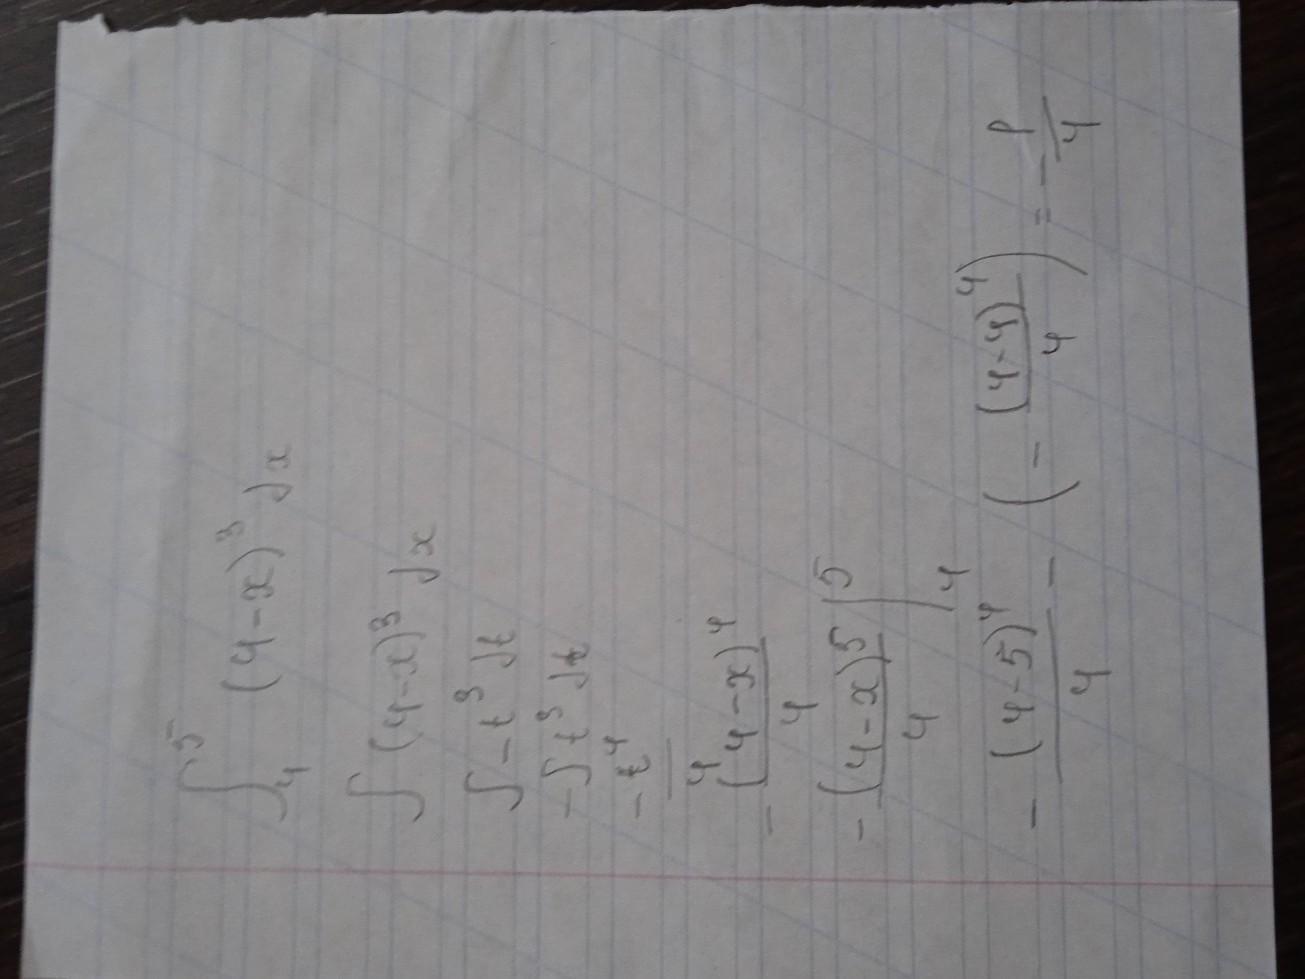 ∫₄⁵ (4-x)³ dx
∫ (4-x)³ dx
∫ -t³ dt
-∫ t³ dt
-t⁴/4
-(4-x)⁴/4
-(4-x)⁵/4 |₄⁵
-(4-5)⁴/4 - (-(4-4)⁴/4) = -1/4